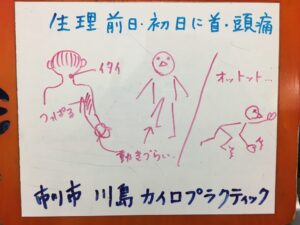 生理前日・初日に首・頭痛
イタイ
つっぱる
動きづらい…
オットット…
市川市 川島カイロプラクティック